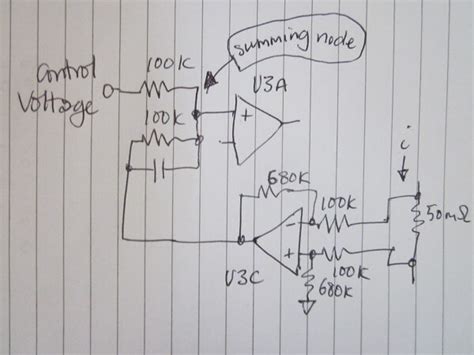 summing node
control
voltage
100K
U3A
+
100K
680K
i
100K
50mΩ
-
+
100K
U3C
680K